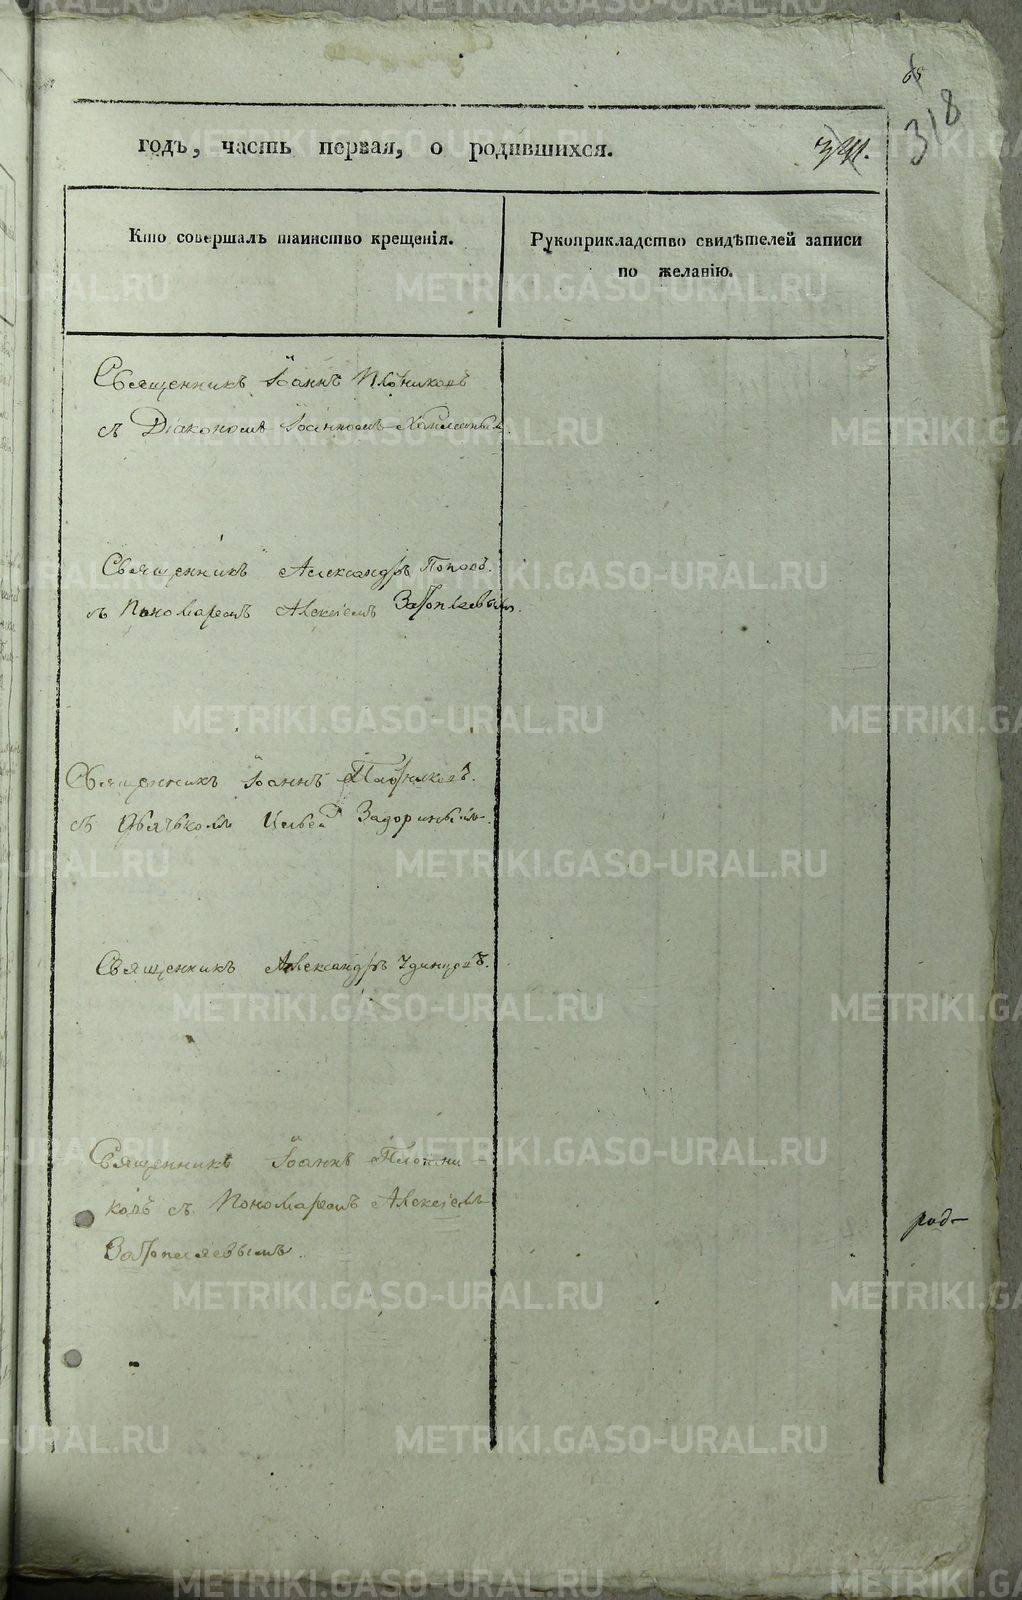 65
318
годъ, часть первая, о родившихся.
341.
Кто совершалъ таинство крещенія.
Рукоприкладство свидѣтелей записи
по желанію.
Священникъ Іоаннъ Плотниковъ
съ Діакономъ Іоанномъ
Священникъ Александръ Поповъ.
съ Пономаремъ Алексіемъ Затопляевымъ.
Священникъ Іоаннъ Плотниковъ.
съ Дьячкомъ Ильей Задоринымъ.
Священникъ Александръ Удинцевъ.
Священникъ Іоаннъ Плотни-
ковъ съ Пономаремъ Алексіемъ
Затопляевымъ.
род-
METRIKI.GASO-URAL.RU